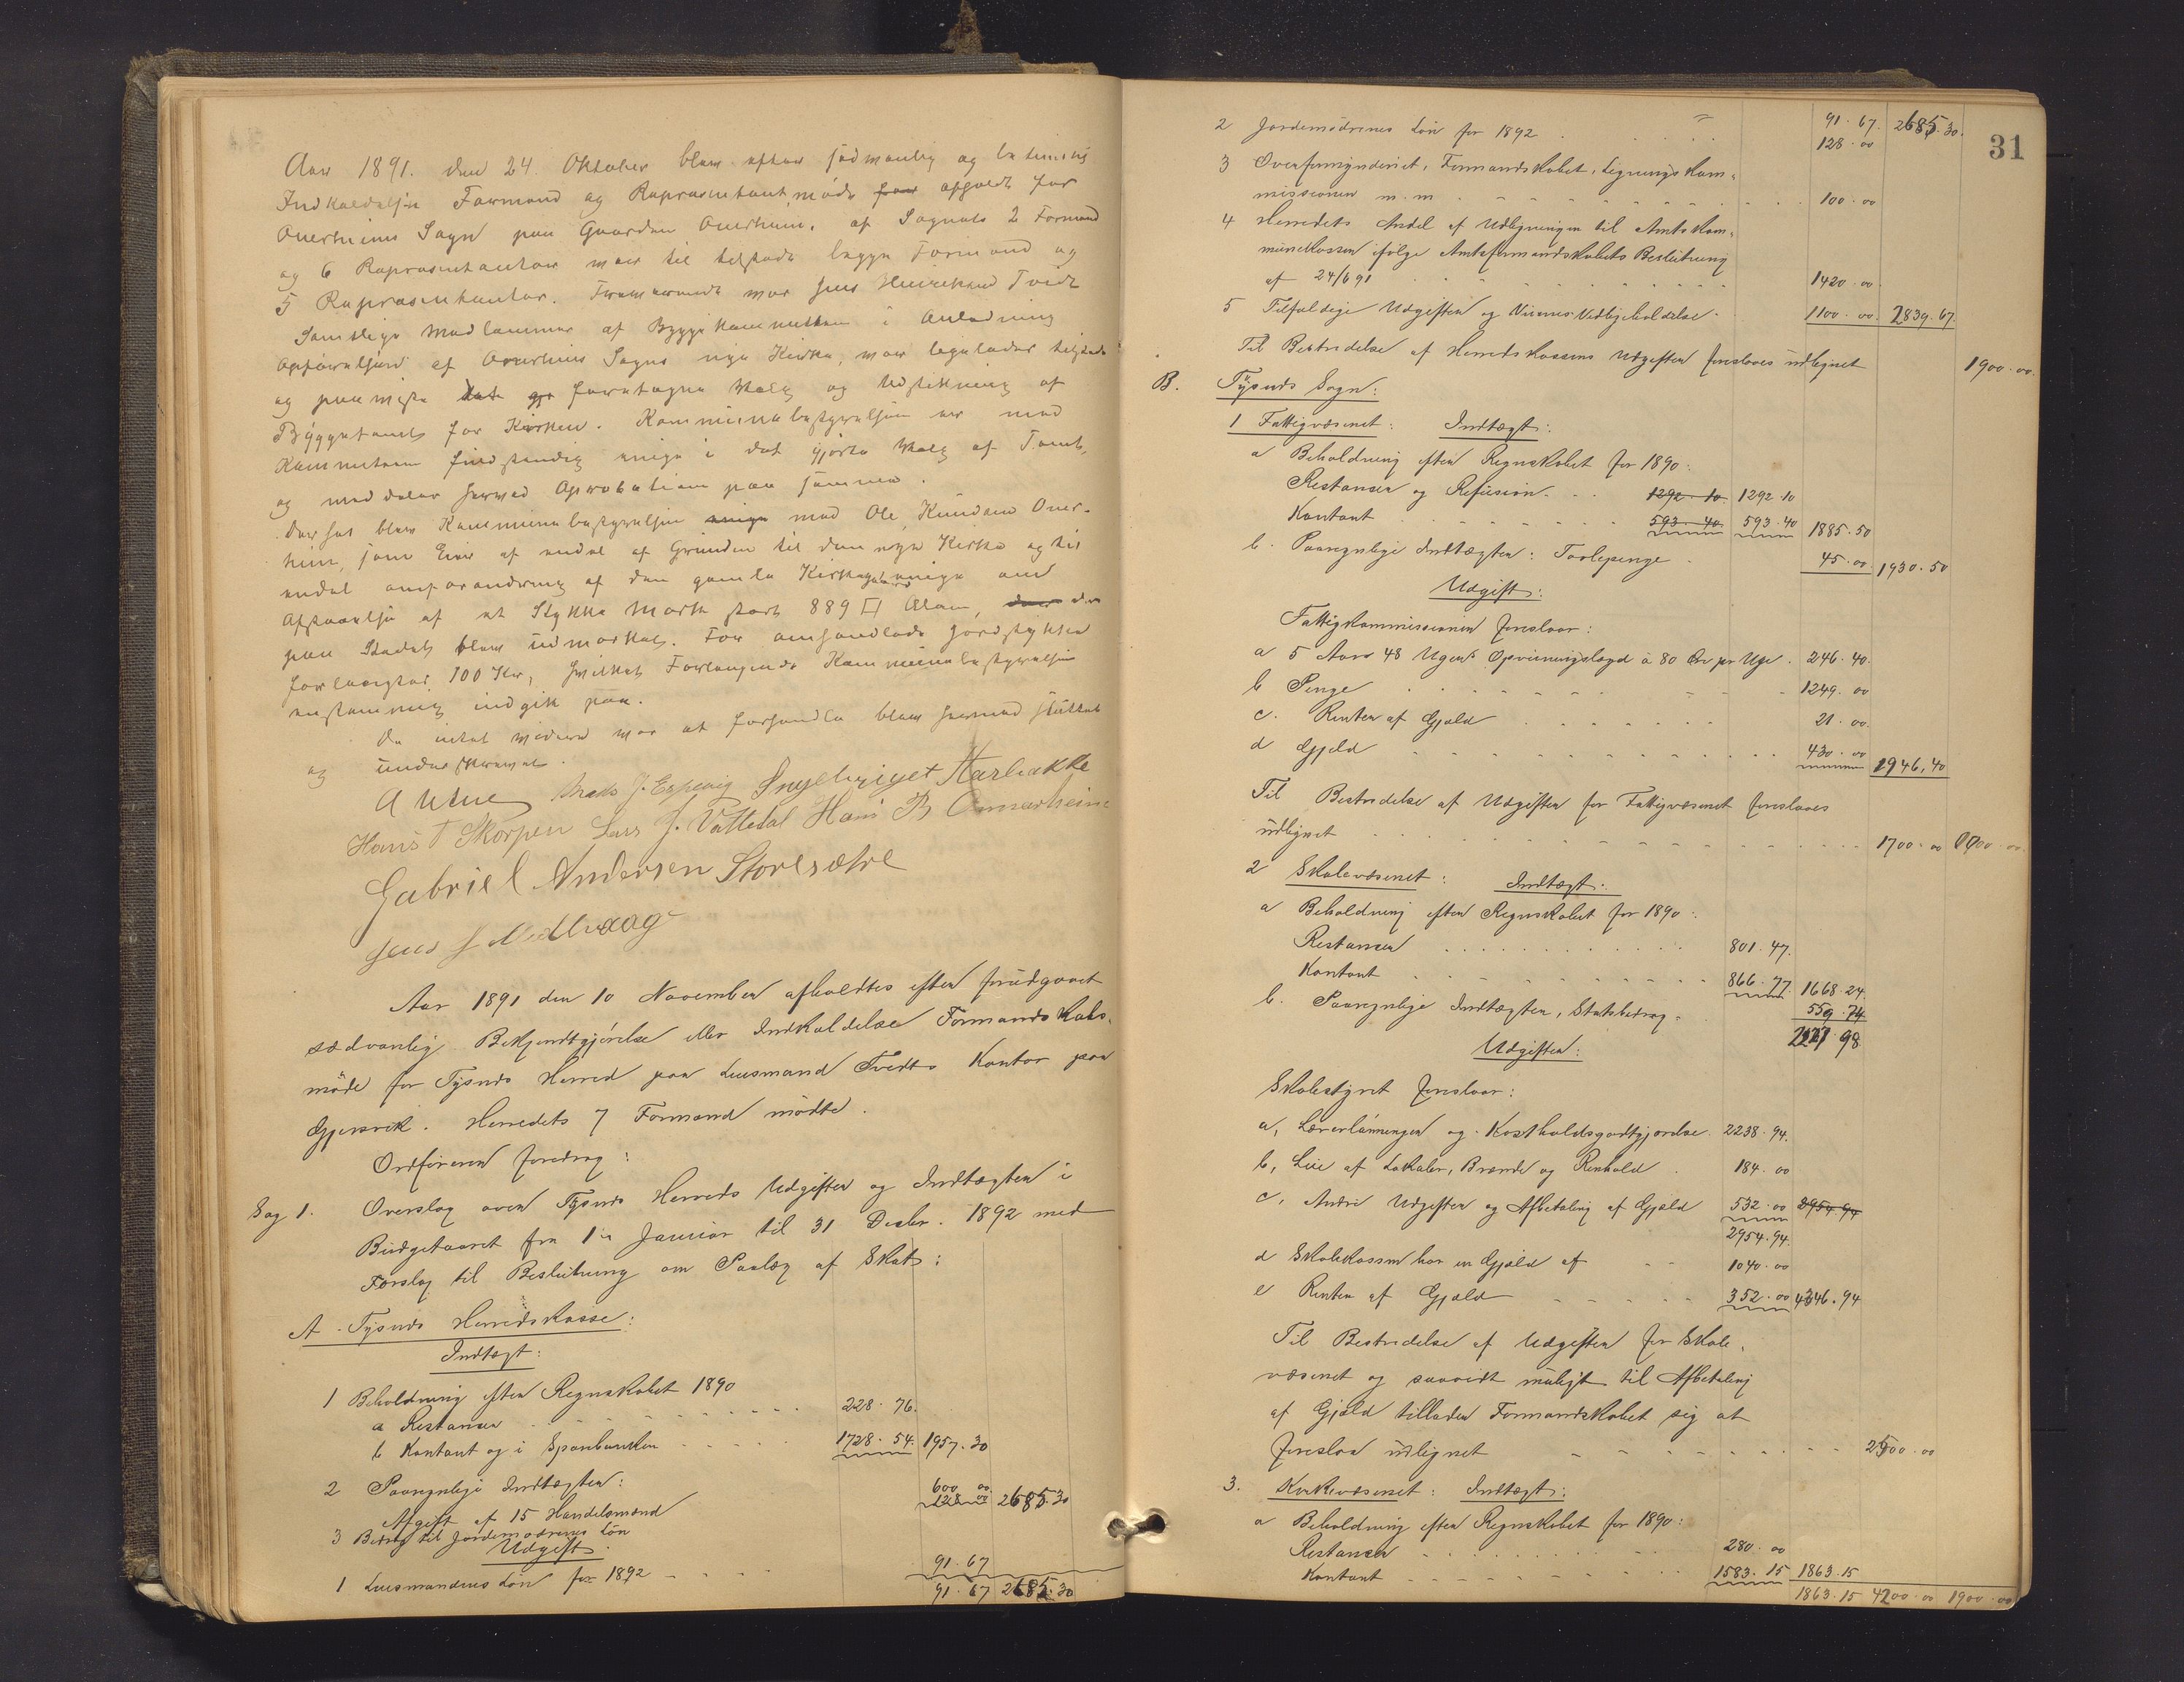 Aar 1891. den 24. Oktober blev efter sædvanlig og betimelig
Indkaldelse Formand og Repræsentantmøde for afholdt for
Onerheims Sogn paa Gaarden Onerheim. af Sognets 2 Formænd
og 6 Repræsentanter var til tilstæde begge Formænd og
5 Repræsentanter. Fremdeles var Hr. Tvedt
Samtlige Medlemmer af Byggekommiteen i Anledning
Opførelsen af Onerheims Sogns nye Kirke, var ligeledes tilstede
og paa foretagne Valg og Udstikning af
Byggetomt for Kirken. Kommunebestyrelsen er med
Kommiteen fuldstændig enige i det gjorte Valg af Tomt,
og meddeler herved Aprobation paa samme.
Derhos blev Kommunebestyrelsen enige med Ole Knudsen Oner-
heim, som Eier af endel af Grunden til den nye Kirke og til
endel omforandring af den gamle Kirkegaard enige om
Afstaaelse af et Stykke Mark stort 889 □ Alen, der
paa Stedet blev udmærket. For omhandlede Jordstykke
forlangtes 100 Kr, hvilket Forlangende Kommunebestyrelsen
enstemmig indgik paa.
Da intet videre var at forhandle blev hermed sluttet
og underskrevet.
Mads J. Espevig Ingebrigt Harbakke
Hans T Skorpen Lars J. Vattedal Hans B Onnarheim
Gabriel Andersen Storesætre
Jens J Medhaag
Aar 1891 den 10 November afholdtes efter forudgaaet
sædvanlig Bekjendtgjørelse eller Indkaldelse Formandskabs-
møde for Tysnes Herred paa Lensmand Tvedts Kontor paa
Gjersvik. Herredets 7 Formænd mødte.
Ordføreren foredrog:
Sag 1. Overslag over Tysnes Herreds Udgifter og Indtægter i
Budgetaaret fra 1ste Januar til 31 Decbr. 1892 med
Forslag til Beslutning om Paalæg af Skat:
A. Tysnes Herredskasse:
Indtægt:
1 Beholdning efter Regnskabet 1890
a Restancer 228. 76.
b Kontant og i Sparebanken 1728. 54. 1957. 30
2 Paaregnelige Indtægter:
Afgift af 15 Handelsmænd 600 00.
3 Bidrag til Jordemødrenes Løn 128 00 2685.30
Udgift.
1 Lensmandens Løn for 1892 91. 67
91. 67 2685.30
31
91. 67. 2685.30.
2 Jordemødrenes Løn for 1892 128. 00
3 Overformynderiet, Formandskabet, Ligningskom-
missionen m. m 100. 00
4 Herredets Andel af Udligningen til Amtskom-
munekassen ifølge Amtsformandskabets Beslutning
af 24/6 91 1420. 00
5 Tilfældige Udgifter og Veienes Vedligeholdelse. 1100. 00. 2839. 67.
Til Bestridelse af Herredskassens Udgifter foreslaaes udlignet 1900. 00.
B. Tysnes Sogn:
1 Fattigvæsenet: Indtægt:
a Beholdning efter Regnskabet for 1890:
Restancer og Refusion 1292. 10. 1292.10
Kontant 593. 40. 593.40 1885. 50
b. Paaregnelige Indtægter: Toolepenge 45. 00 1930. 50
Udgift:
Fattigkommissionen foreslaar:
a 5 Aars 48 Ugers Opvarmingslægd à 80 Øre pr Uge. 246. 40.
b Penge 1249. 00
c. Renter af Gjæld 21. 00.
d Gjæld 430. 00 1946,40
Til Bestridelse af Udgifter for Fattigvæsenet foreslaaes
udlignet 1700. 00 1900. 00.
2 Skolevæsenet: Indtægt.
a Beholdning efter Regnskabet for 1890:
Restancer 801. 47.
Kontant 866. 77. 1668. 24.
b. Paaregnelige Indtægter, Statsbidrag 559. 74
2227. 98
Udgifter:
Skolestyret foreslaar:
a, Lærerlønninger og Kostholdsgodtgjørelse. 2238. 94.
b, Leie af Lokaler, Brænde og Renhold. 184. 00
c, Andre Udgifter og Afbetaling af Gjæld 532. 00 2954 94
2954. 94.
d Skolekassen har en Gjæld af 1040. 00
e Renter af Gjæld 352. 00 4346. 94
Til Bestridelse af Udgifter for Skole-
væsenet og saavidt muligt til Afbetaling
af Gjæld tillader Formandskabet sig at
foreslaa udlignet 2500. 00
3. Kirkevæsenet: Indtægt:
a Beholdning efter Regnskabet for 1890:
Restancer 280. 00
Kontant 1583. 15 1863. 15
1863. 15 4200. 00 1900. 00